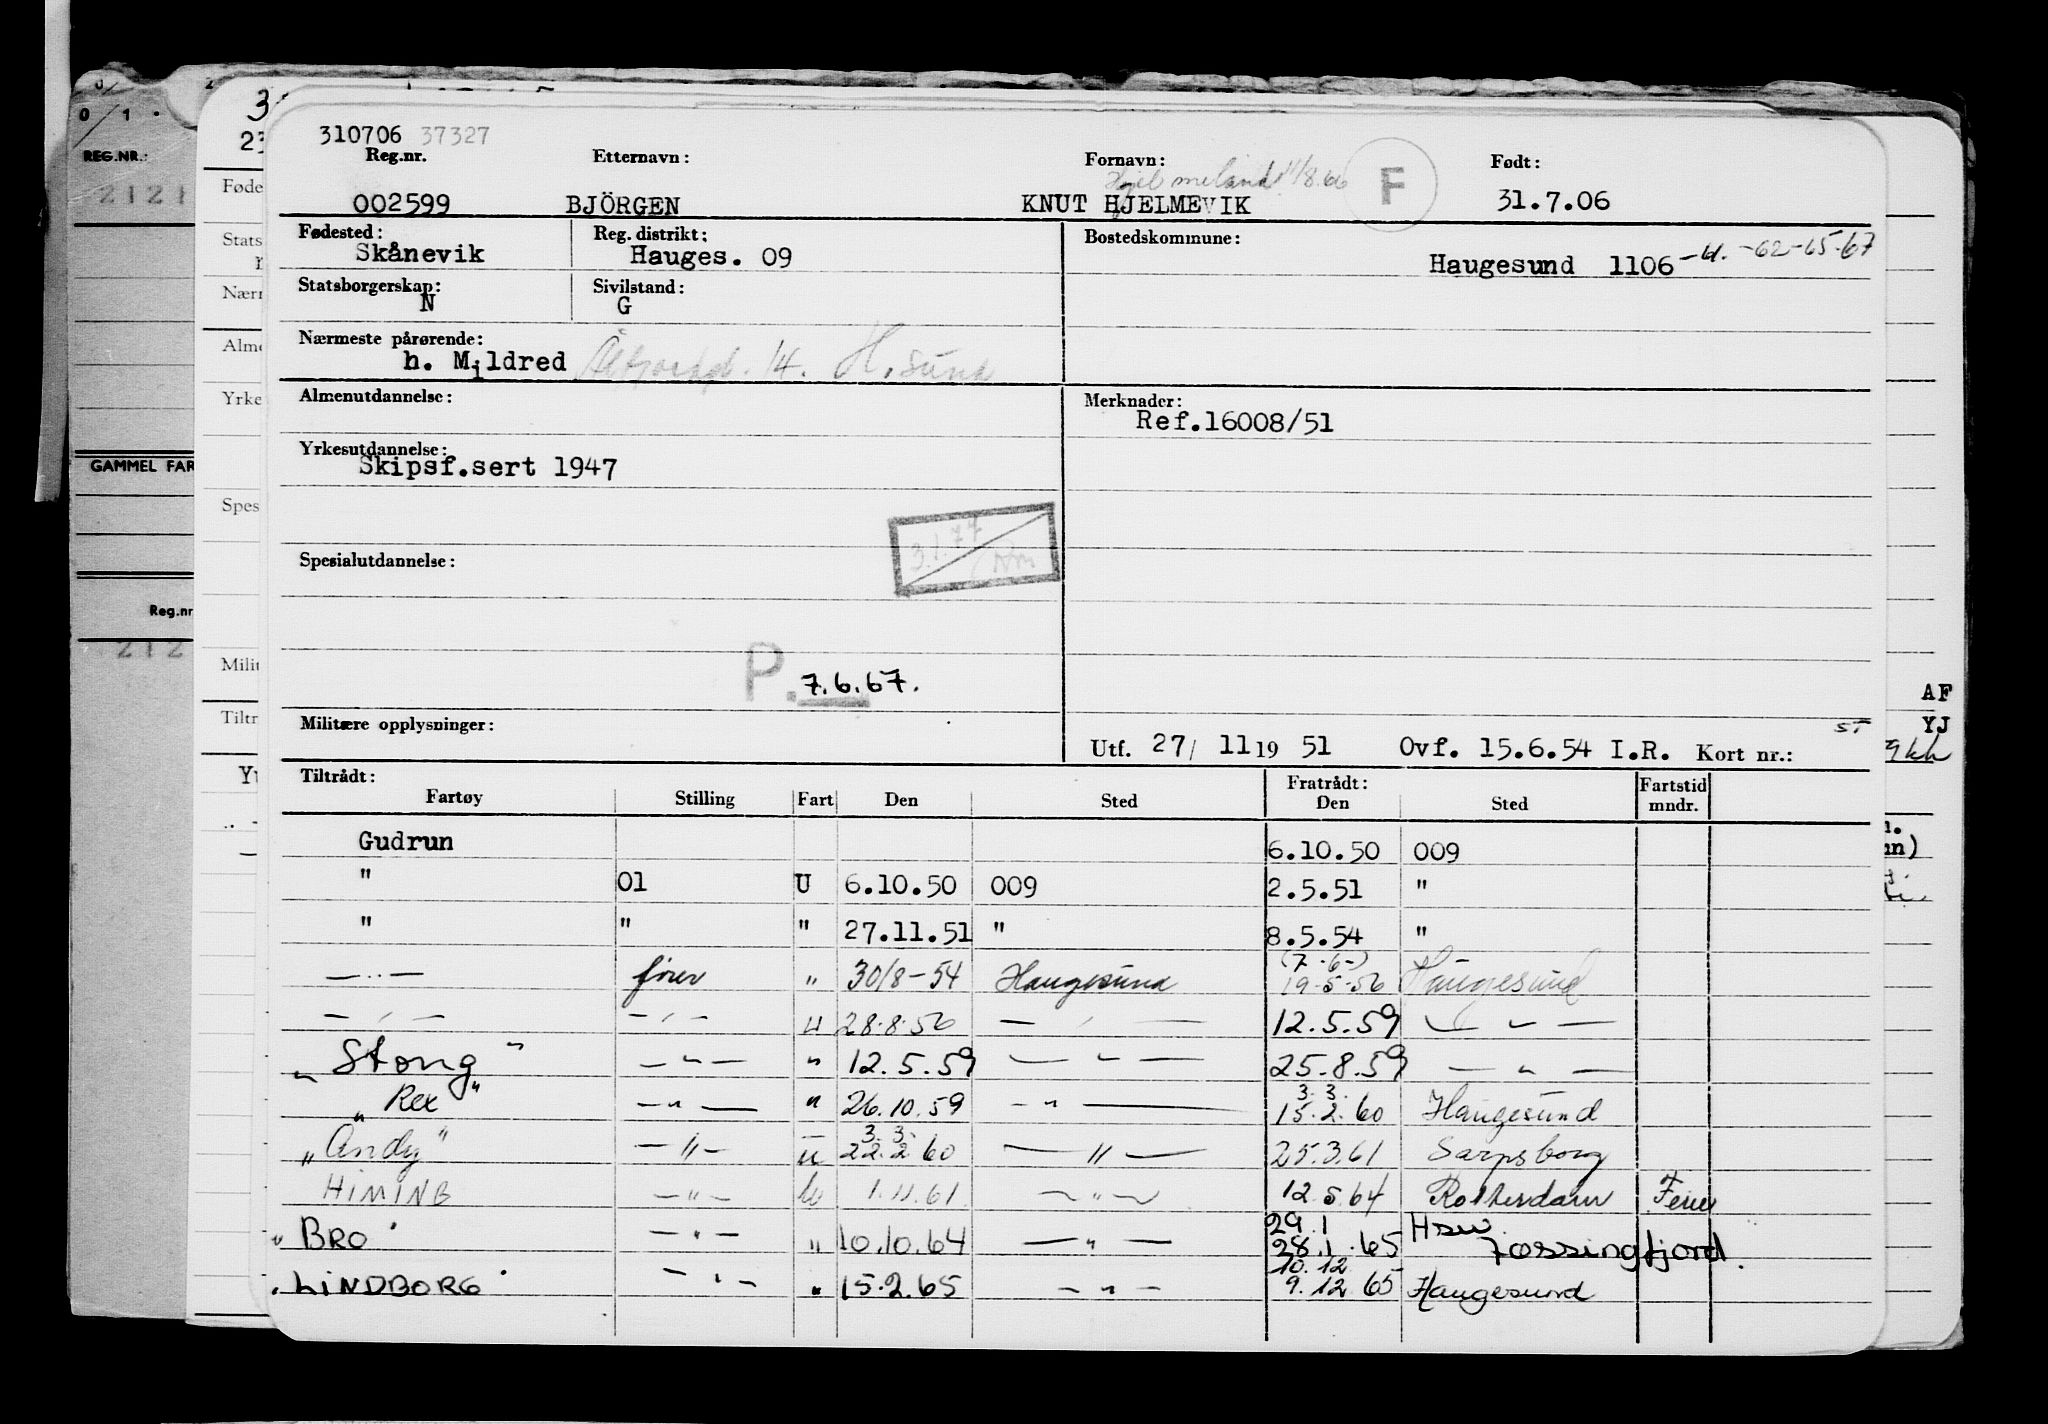 310706 37327
Reg.nr. Etternavn: Fornavn: Født:
11/8.66 F
002599 BJÖRGEN KNUT HJELMEVIK 31.7.06
Fødested: Reg. distrikt: Bostedskommune:
Skånevik Hauges. 09 Haugesund 1106 -62-65-67
Statsborgerskap: Sivilstand:
N G
Nærmeste pårørende:
h. Mildred 14. H.sund
Almenutdannelse: Merknader:
Ref.16008/51
Yrkesutdannelse:
Skipsf.sert 1947
3.1.77
Spesialutdannelse:
P. 7.6.67.
Militære opplysninger:
Utf. 27/ 11 19 51 Ovf. 15.6.54 I.R. Kort nr.: ST
Tiltrådt: Fratrådt: Fartstid
Fartøy Stilling Fart Den Sted Den Sted mndr.
Gudrun 6.10.50 009
" 01 U 6.10.50 009 2.5.51 "
" " " 27.11.51 " 8.5.54 "
(7-6-)
— " — fører " 30/8-54 Haugesund 19-5-56 Haugesund
— " — — " — U 28.8.56 — " — 12.5.59 — " —
"Stong" — " — " 12.5.59 — " — 25.8.59 — " —
3.3.
"Rex" — " — " 26.10.59 — " — 15.2.60 Haugesund
3.3.
"Andy" — " — U 22.2.60 — " — 25.3.61 Sarpsborg
HIMINB — " — U 1.11.61 — " — 12.5.64 Rotterdam Ferie
29.1 Hsu
"BRO" — " — " 10.10.64 — " — 28.1.65 Jøssingfjord.
10.12
"LINDBORG" — " — " 15.2.65 — " — 9.12.65 Haugesund
0/1.
REG.NR.:
2121
GAMMEL FAR
Reg.nr
212
23
Føde
Stats
Nærr
Alme
Yrke
Spes
Milit
Tiltr
AF
YJ